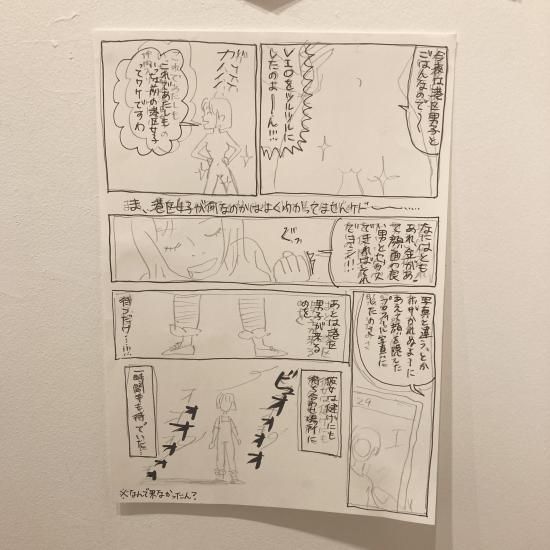 今夜は港区男子と
ごはんなので〜
VIOをツルツルに
したのよーん!!!
ガハハハ
これであたしも
いっぱしの港区女子
ってワケですわ
ま、港区女子が何なのかはよくわかってませんケド
なにはとも
あれ金があっ
て顔面の良
い男とセッ久
できればそれ
でヨシ!!!
グッ
写真と違う、とか
ホザかれぬよーに
あえて顔を隠した
プロフィール写真に
したのよ
29
あとは港区
男子が来る
のを
待つだけ…!!!
彼女は健気にも
待ち合わせ場所に
一時間半も待っていた…
ビュオオオオ
オオオオ
※なんで来なかったん?